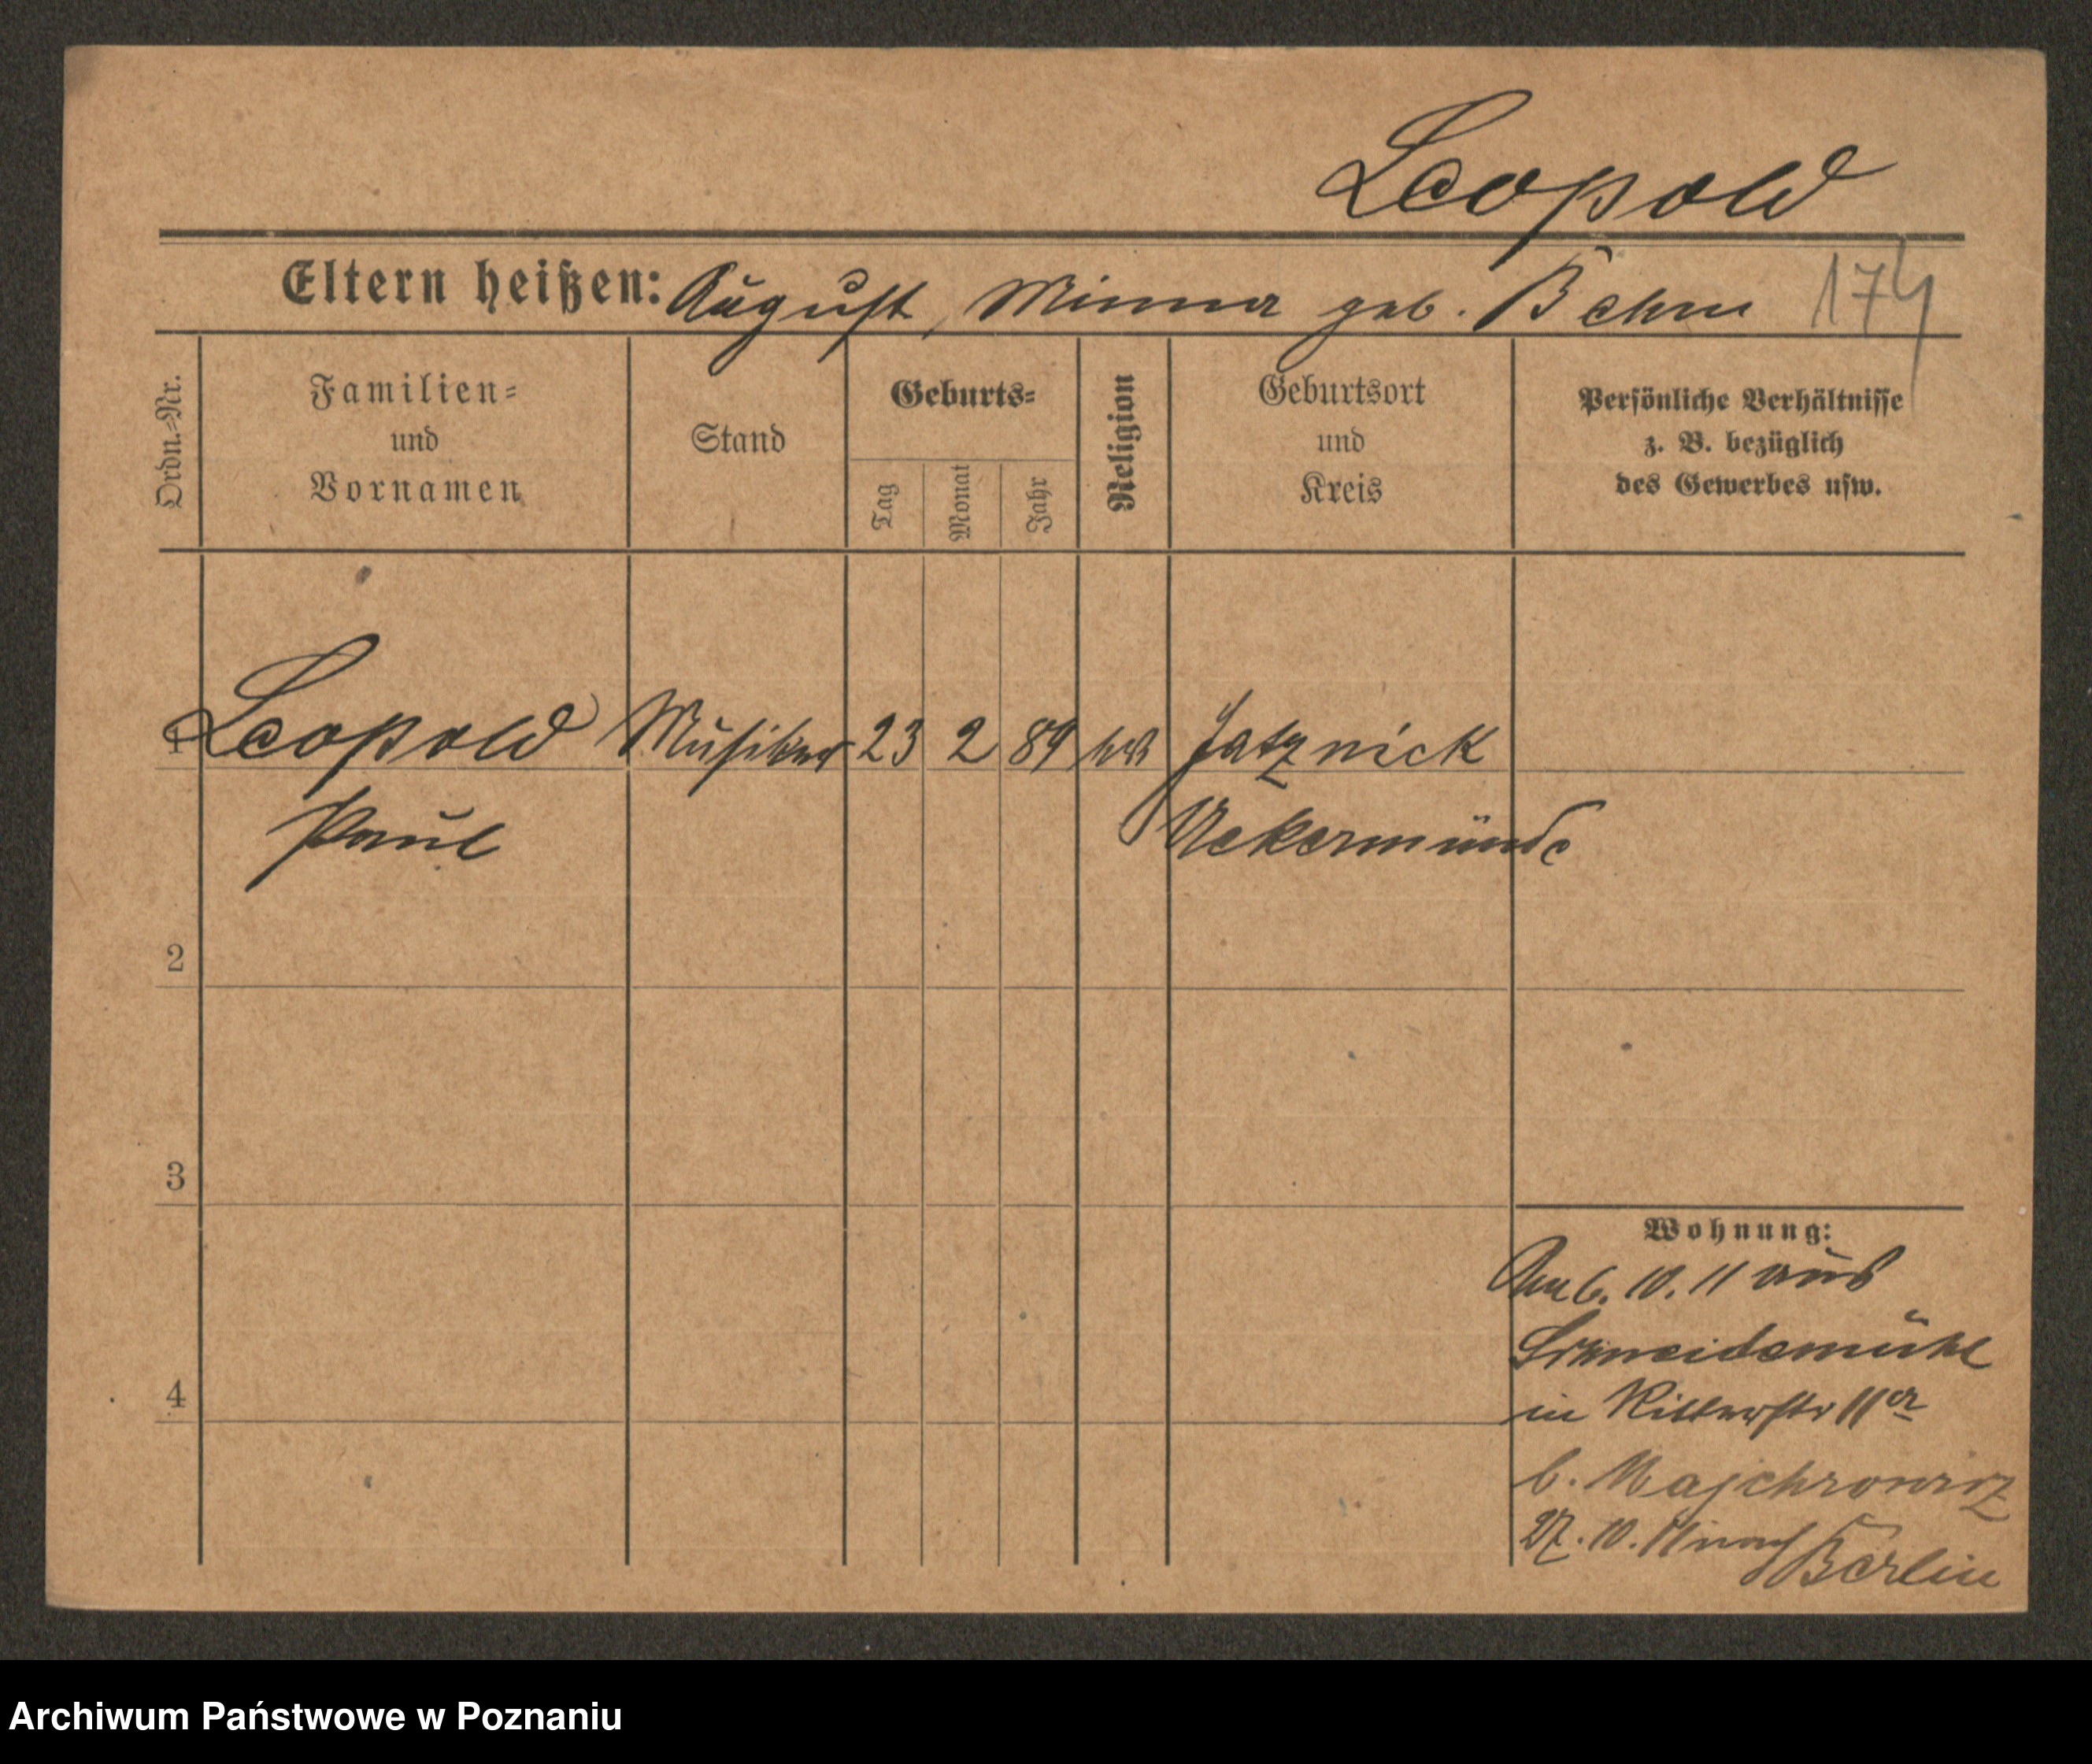 Leopold
Eltern heißen: August, Minna geb. Behm 174
Ordn.-Nr.
Familien-
und
Vornamen
Stand
Geburts-
Tag
Monat
Jahr
Religion
Geburtsort
und
Kreis
Persönliche Verhältnisse
z. B. bezüglich
des Gewerbes usw.
1 Leopold Musiker 23 2 89 Jatznick
Paul Uekermünde
2
3
4
Wohnung:
Am 6. 10. 11 aus
Schneidemühl
in Ritterstr 11a
b. Majchrowicz
27. 10. 11 nach Berlin
Archiwum Państwowe w Poznaniu